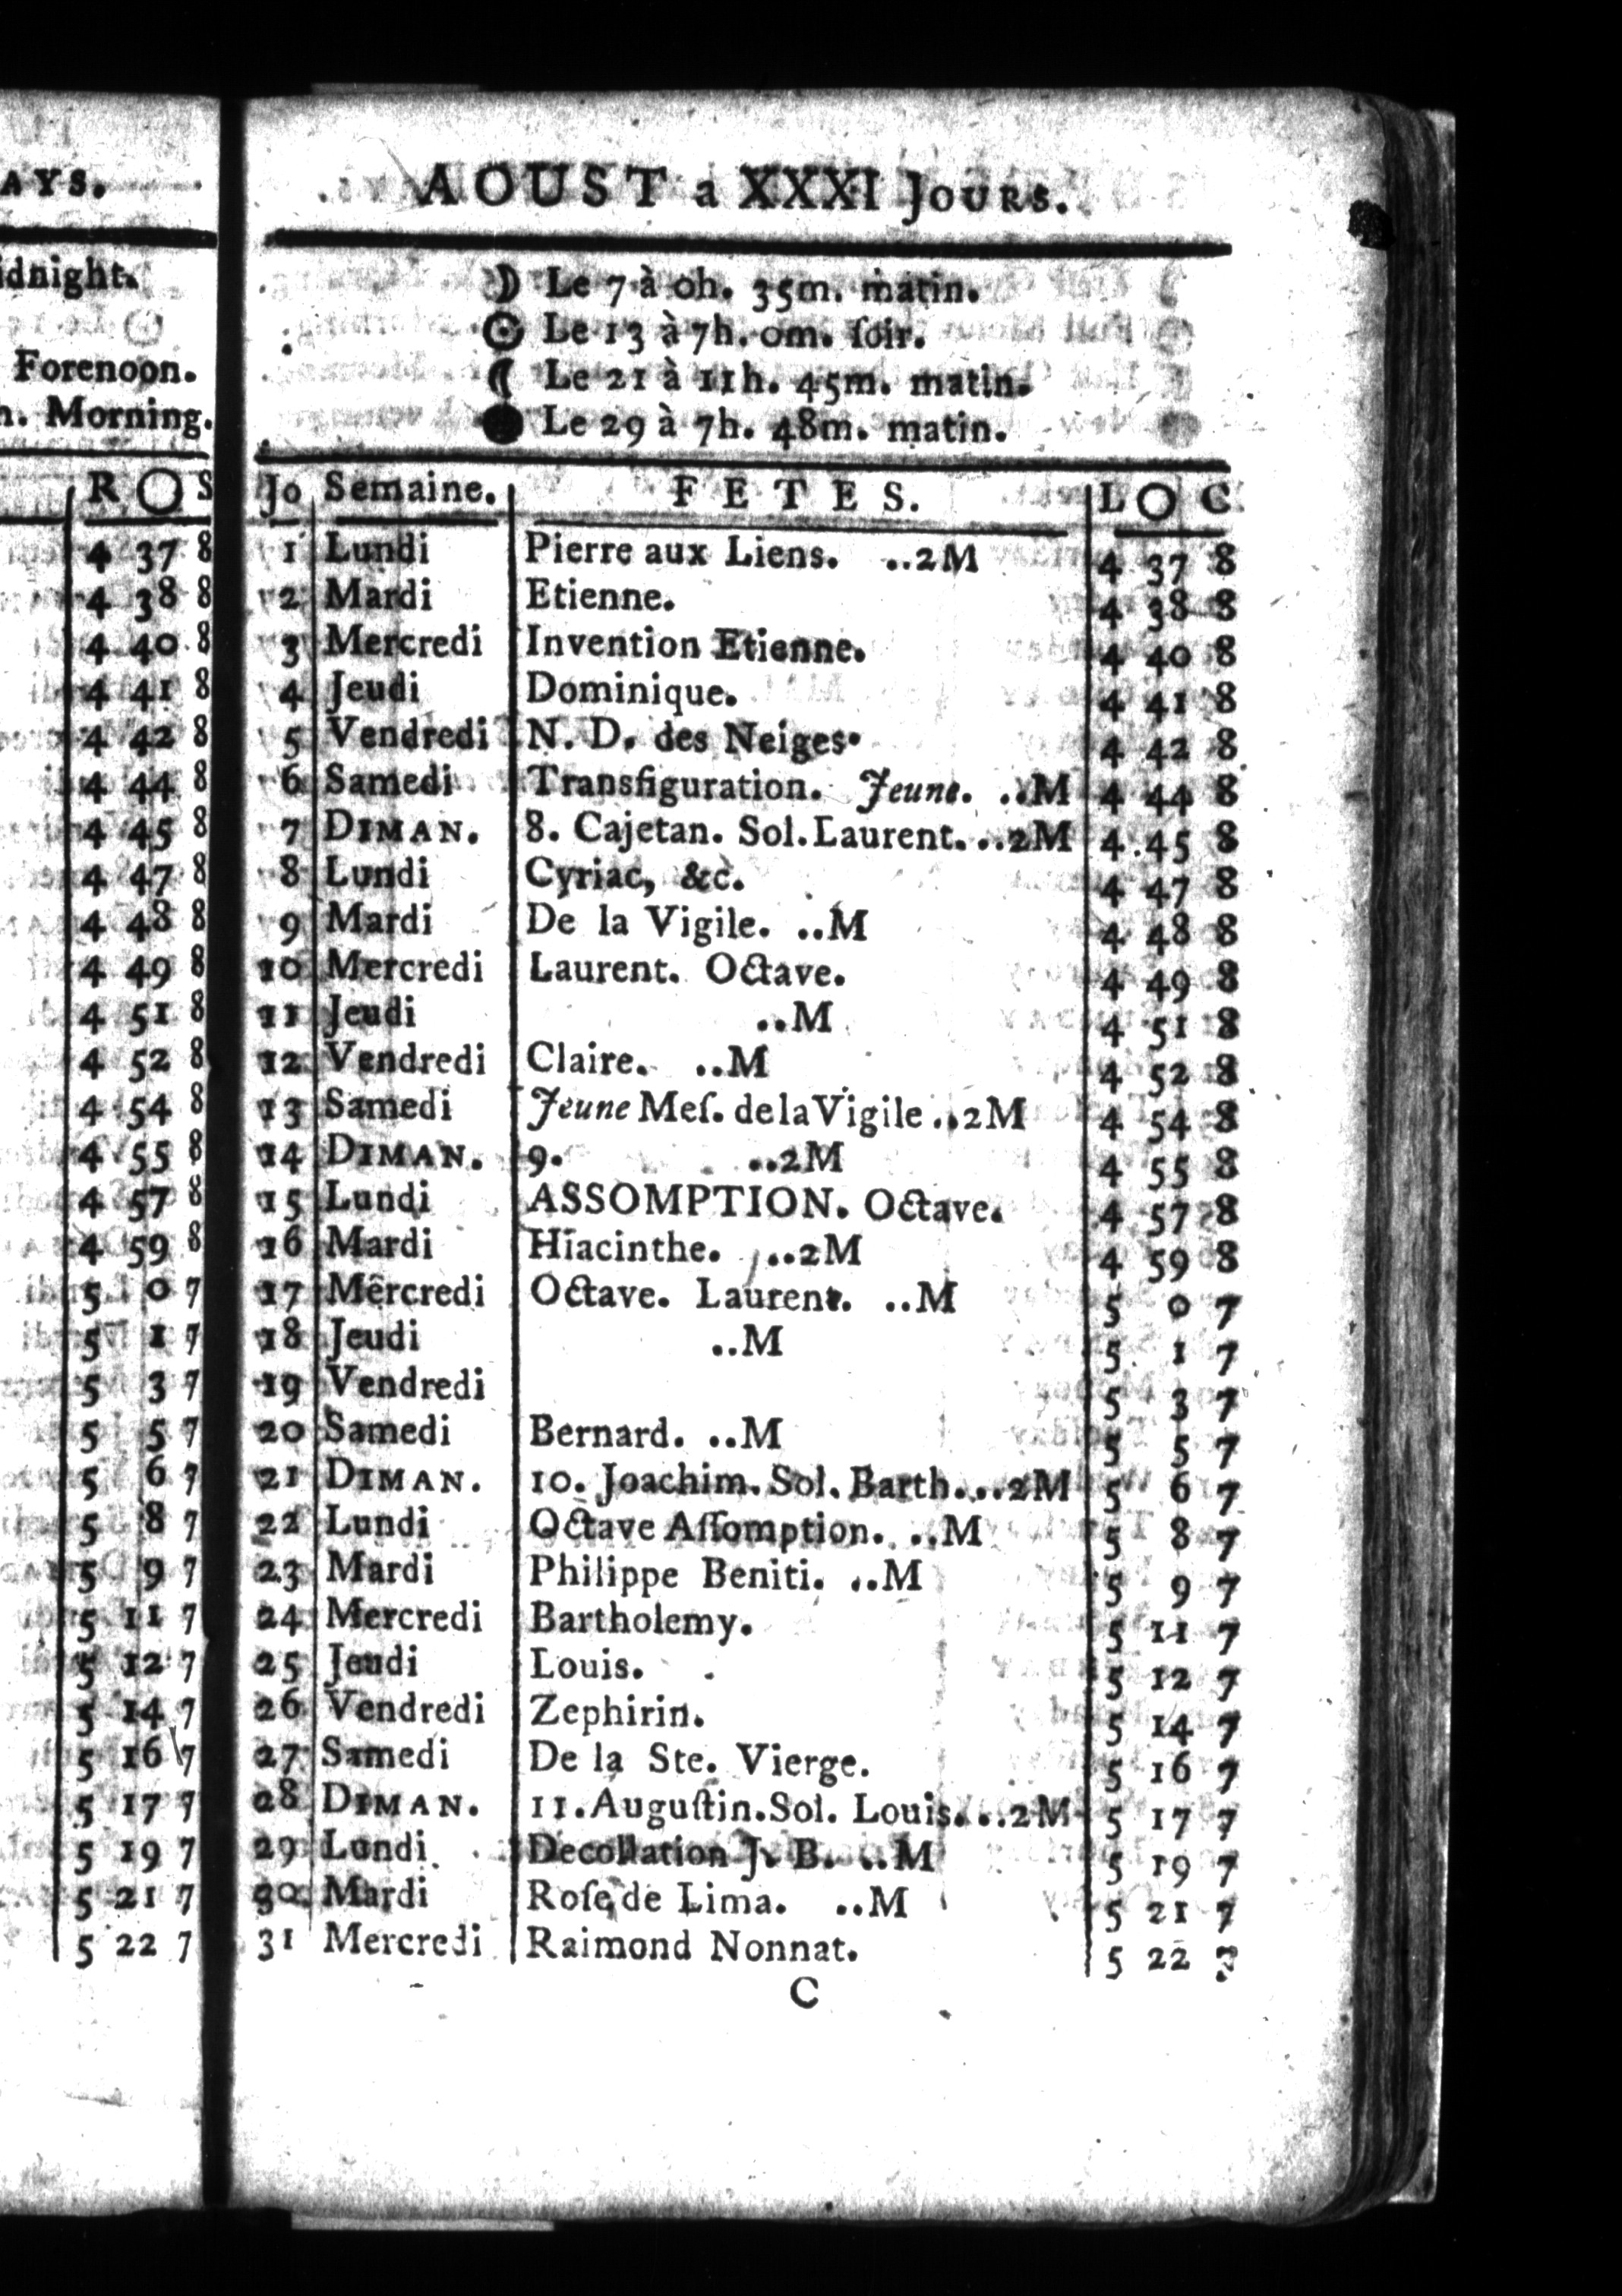 AYS.
idnight.
Forenoon.
h. Morning.
R O S
4 37 8
4 38 8
4 40 8
4 41 8
4 42 8
4 44 8
4 45 8
4 47 8
4 48 8
4 49 8
4 51 8
4 52 8
4 54 8
4 55 8
4 57 8
4 59 8
5 0 7
5 1 7
5 3 7
5 5 7
5 6 7
5 8 7
5 9 7
5 11 7
5 12 7
5 14 7
5 16 7
5 17 7
5 19 7
5 21 7
5 22 7
AOUST a XXXI JOURS.
☽ Le 7 à 0h. 35m. matin.
☉ Le 13 à 7h. 0m. ſoir.
☾ Le 21 à 11h. 45m. matin.
● Le 29 à 7h. 48m. matin.
Jo Semaine. FETES. L O C
1 Lundi Pierre aux Liens. ..2M 4 37 8
2 Mardi Etienne. 4 38 8
3 Mercredi Invention Etienne. 4 40 8
4 Jeudi Dominique. 4 41 8
5 Vendredi N. D. des Neiges. 4 42 8
6 Samedi Transfiguration. Jeune. ..M 4 44 8
7 DIMAN. 8. Cajetan. Sol. Laurent. ..2M 4 45 8
8 Lundi Cyriac, &c. 4 47 8
9 Mardi De la Vigile. ..M 4 48 8
10 Mercredi Laurent. Octave. 4 49 8
11 Jeudi ..M 4 51 8
12 Vendredi Claire. ..M 4 52 8
13 Samedi Jeune Meſ. de la Vigile ..2M 4 54 8
14 DIMAN. 9. ..2M 4 55 8
15 Lundi ASSOMPTION. Octave. 4 57 8
16 Mardi Hiacinthe. ..2M 4 59 8
17 Mercredi Octave. Laurent. ..M 5 0 7
18 Jeudi ..M 5 1 7
19 Vendredi 5 3 7
20 Samedi Bernard. ..M 5 5 7
21 DIMAN. 10. Joachim. Sol. Barth. ..2M 5 6 7
22 Lundi Octave Aſſomption. ..M 5 8 7
23 Mardi Philippe Beniti. ..M 5 9 7
24 Mercredi Bartholemy. 5 11 7
25 Jeudi Louis. 5 12 7
26 Vendredi Zephirin. 5 14 7
27 Samedi De la Ste. Vierge. 5 16 7
28 DIMAN. 11. Auguſtin. Sol. Louis. ..2M 5 17 7
29 Lundi Decollation J. B. ..M 5 19 7
30 Mardi Roſe de Lima. ..M 5 21 7
31 Mercredi Raimond Nonnat. 5 22 7
C